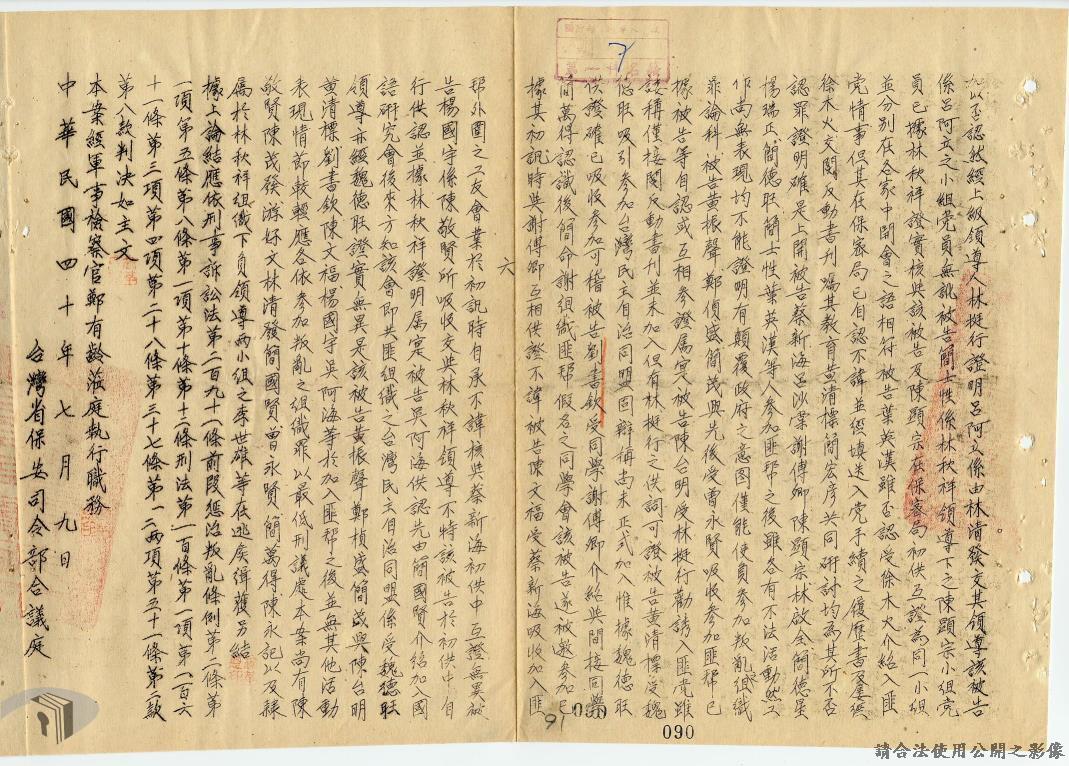 加以否認然經上級領導人林挺行證明呂阿立係由林清發交其領導該被告
係呂阿立之小組党員無訛被告簡士性係林秋祥領導下之陳顯宗小組党
員已據林秋祥證實核與該被告及陳顯宗在保密局初供互證為同一小組
並分別在各家中開會之語相符被告葉英漢雖否認受徐木火介紹入匪
党情事但其在保密局已自認不諱並經填送入党手續之履歷書及羣經
徐木火交閱反動書刊囑其教育黃清標簡宏彥共同研討均為其所不否
認罪證明確是上開被告蔡新海呂沙棠謝傅卿陳顯宗林啟全簡德星
楊瑞正簡德旺簡士性葉英漢等人參加匪帮之後雖各有不法活動然工
作尚無表現均不能證明有顛覆政府之意图僅能使負參加叛亂組織
罪論科被告黃振聲鄭偵盛簡茂與先後受曹永賢吸收參加匪帮已
據被告等自認或互相參證屬实被告陳台明受林挺行勸誘入匪党雖
誤稱僅接閱反動書刊並未加入但有林挺行之供詞可證被告黃清標受魏
德旺吸引參加台灣民主自治同盟固辯稱尚未正式加入惟據魏德旺
供證確已吸收參加可稽被告劉書欽受同學謝傅卿介紹與間接同學
簡萬得認識後簡命謝組織匪帮假名之同學會該被告遂被邀參加已
據其初訊時與謝傅卿互相供證不諱被告陳文福受蔡新海吸收加入匪
帮外圍之工友會業於初訊時自承不諱核與蔡新海初供中互證無異被
告楊國宇係陳敬賢所吸收交與林秋祥領導不特該被告於初供中自
行供認並據林秋祥證明屬实被告吳阿海供認先由簡國賢介紹加入國
語研究會後來方知該會即共匪組織之台灣民主自治同盟係受魏德旺
領導亦經魏德旺證實無異是該被告黃振聲鄭楨盛簡茂與陳台明
黃清標劉書欽陳文福楊國宇吳阿海等於加入匪帮之後並無其他活動
表現情節較輕應各依參加叛亂之組織罪以最低刑議處本案尚有陳
敬賢陳茂癸游好文林清發簡國賢曾永賢簡萬得陳永記以及隸
屬於林秋祥組織下負領導兩小組之李世雄等在逃俟緝獲另結
據上論結應依刑事訴訟法第二百九十一條前段懲治叛亂條例第二條第
一項第五條第八條第一項第十條第十二條刑法第一百條第一項第二百六
十一條第三項第四項第二十八條第三十七條第一二兩項第五十一條第二款
第八款判決如主文
本案經軍事檢察官鄭有齡蒞庭執行職務
中華民國四十年七月九日
台灣省保安司令部合議庭
六
7
91
090
090
請合法使用公開之影像